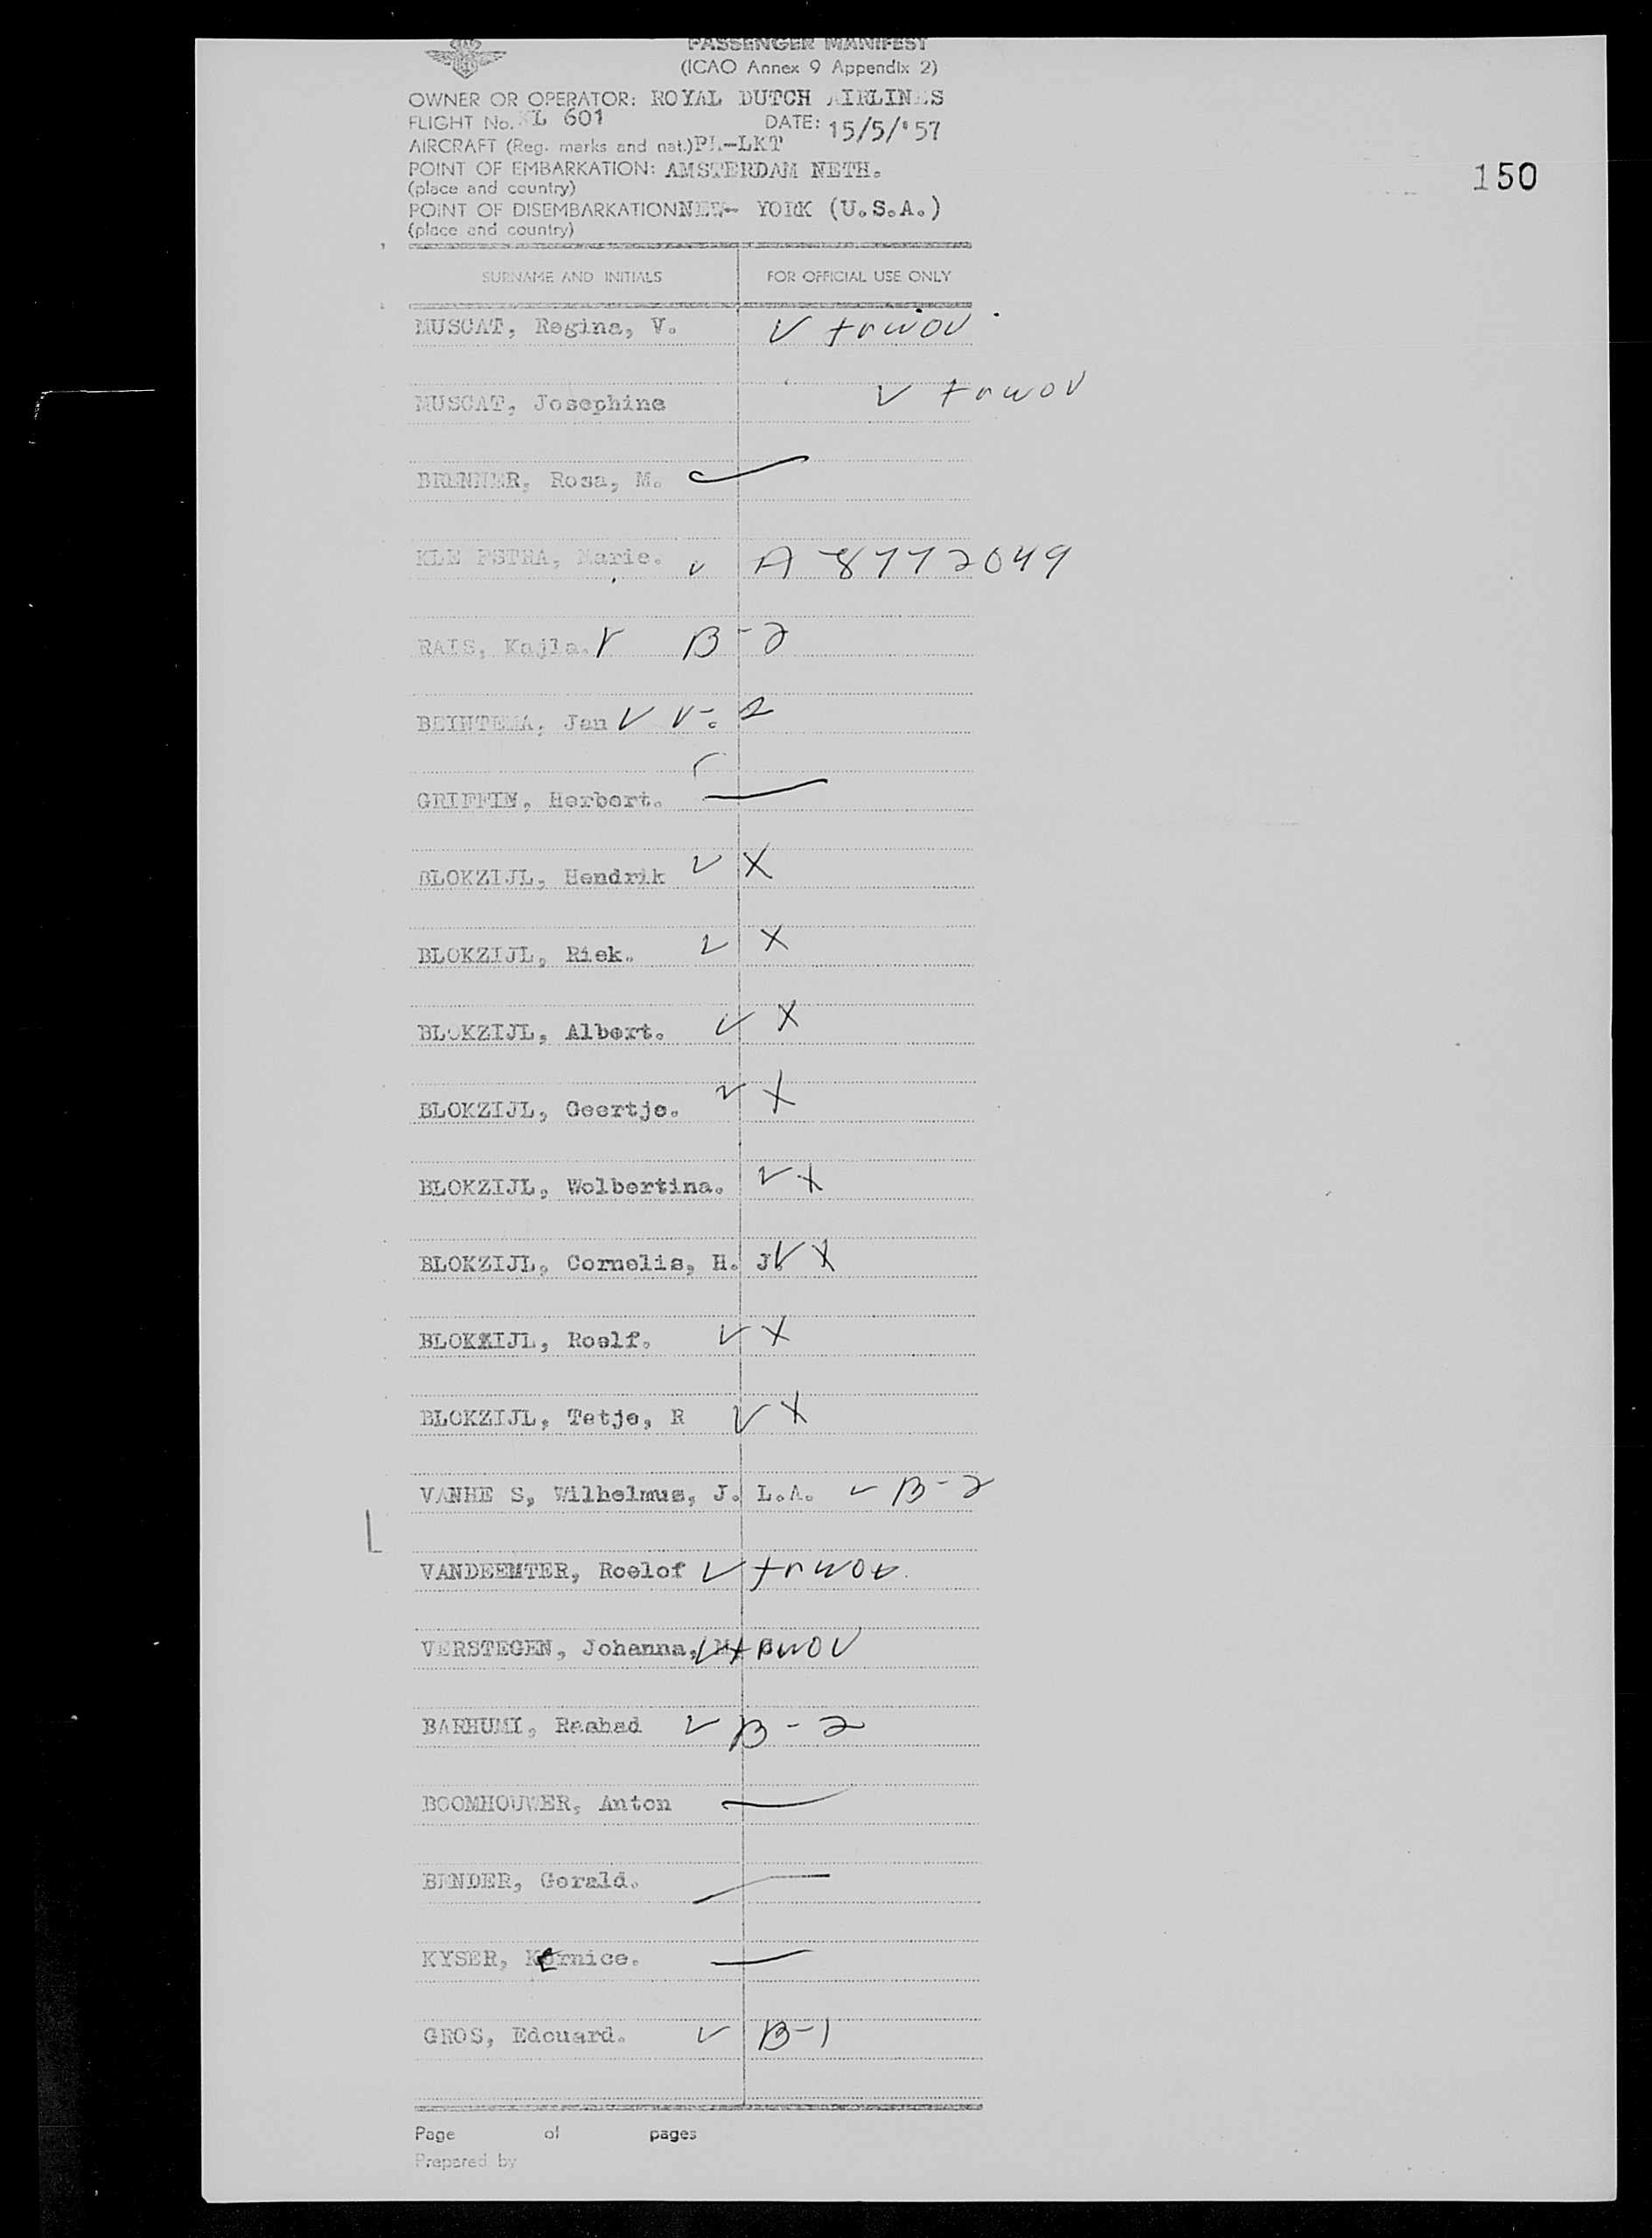 PASSENGER MANIFEST
(ICAO Annex 9 Appendix 2)
OWNER OR OPERATOR: ROYAL DUTCH AIRLINES
FLIGHT No. KL 601 DATE: 15/5/'57
AIRCRAFT (Reg. marks and nat.) PL-LKT
POINT OF EMBARKATION: AMSTERDAM NETH.
(place and country)
POINT OF DISEMBARKATION NEW- YORK (U.S.A.)
(place and country)
150
SURNAME AND INITIALS FOR OFFICIAL USE ONLY
MUSCAT, Regina, V. V trwov
MUSCAT, Josephine V trwov
BRENNER, Rosa, M.
KLE PSTRA, Marie. V A 8772049
RAIS, Kajla. V B-2
BEINTEMA, Jan V V-2
GRIFFIN, Herbert.
BLOKZIJL, Hendrik V X
BLOKZIJL, Riek. V X
BLOKZIJL, Albert. V X
BLOKZIJL, Geertje. V X
BLOKZIJL, Wolbertina. V X
BLOKZIJL, Cornelis, H. J. V X
BLOKZIJL, Roelf. V X
BLOKZIJL, Tetje, R V X
VANHE S, Wilhelmus, J. L.A. V B-2
VANDEEMTER, Roelof V trwov
VERSTEGEN, Johanna, V trwov
BARHUMI, Rashad V B-2
BOOMHOUWER, Anton
BENDER, Gerald.
KYSER, Kernice.
GROS, Edouard. V B-1
Page of pages
Prepared by